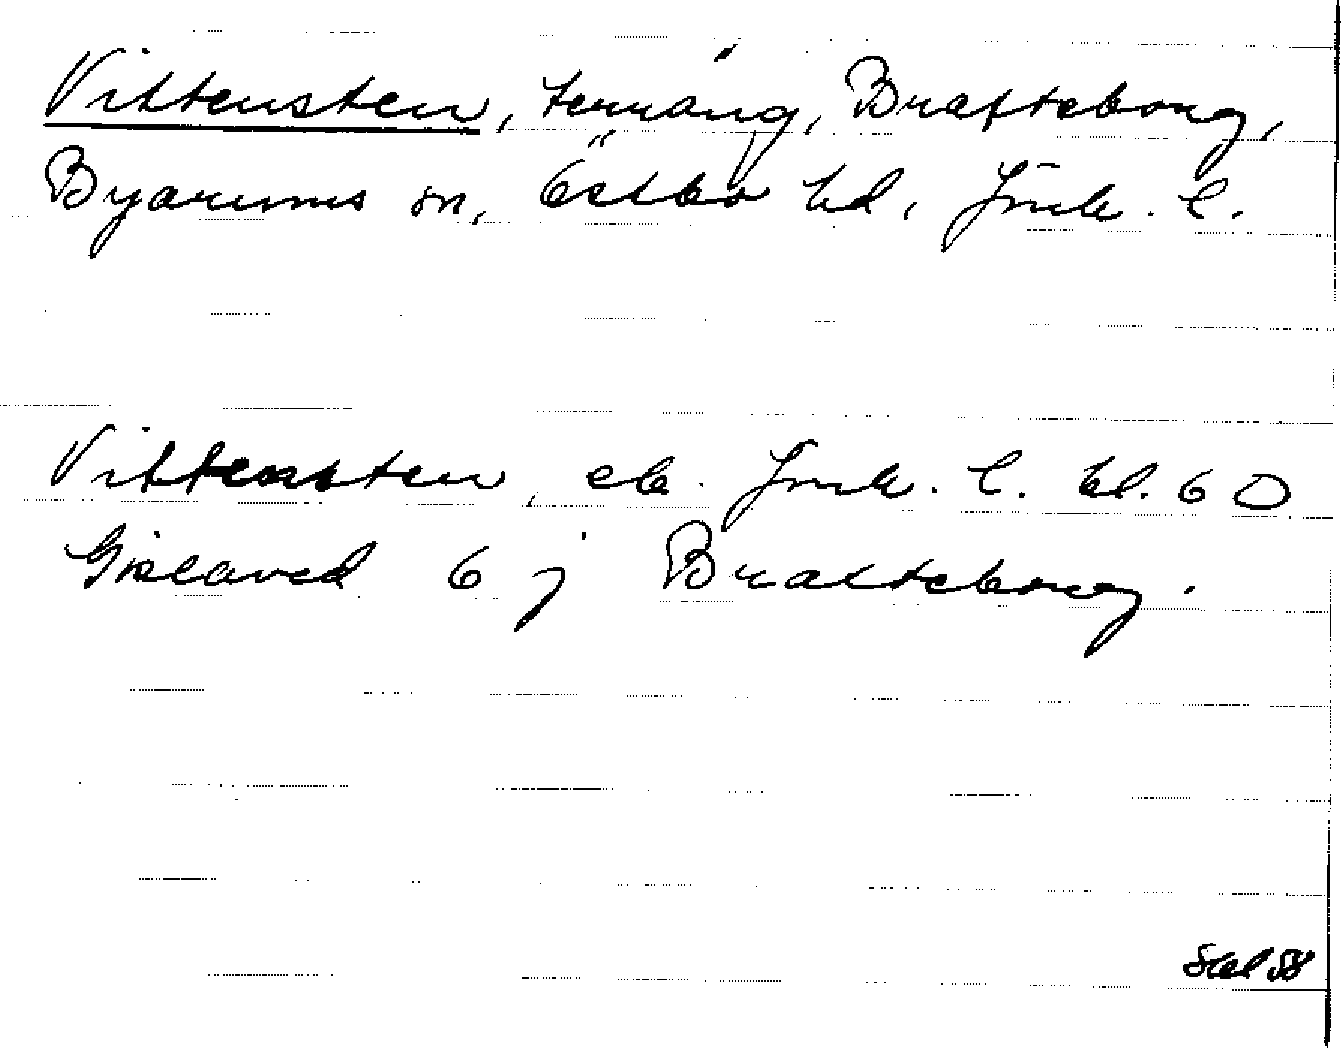 Vittensten, terräng, Bratteborg,
Byarums sn, Östbo hd, Jönk. l.
Vittensten, ek. Jönk. l. bl. 60
Gislaved 6 j Bratteborg.